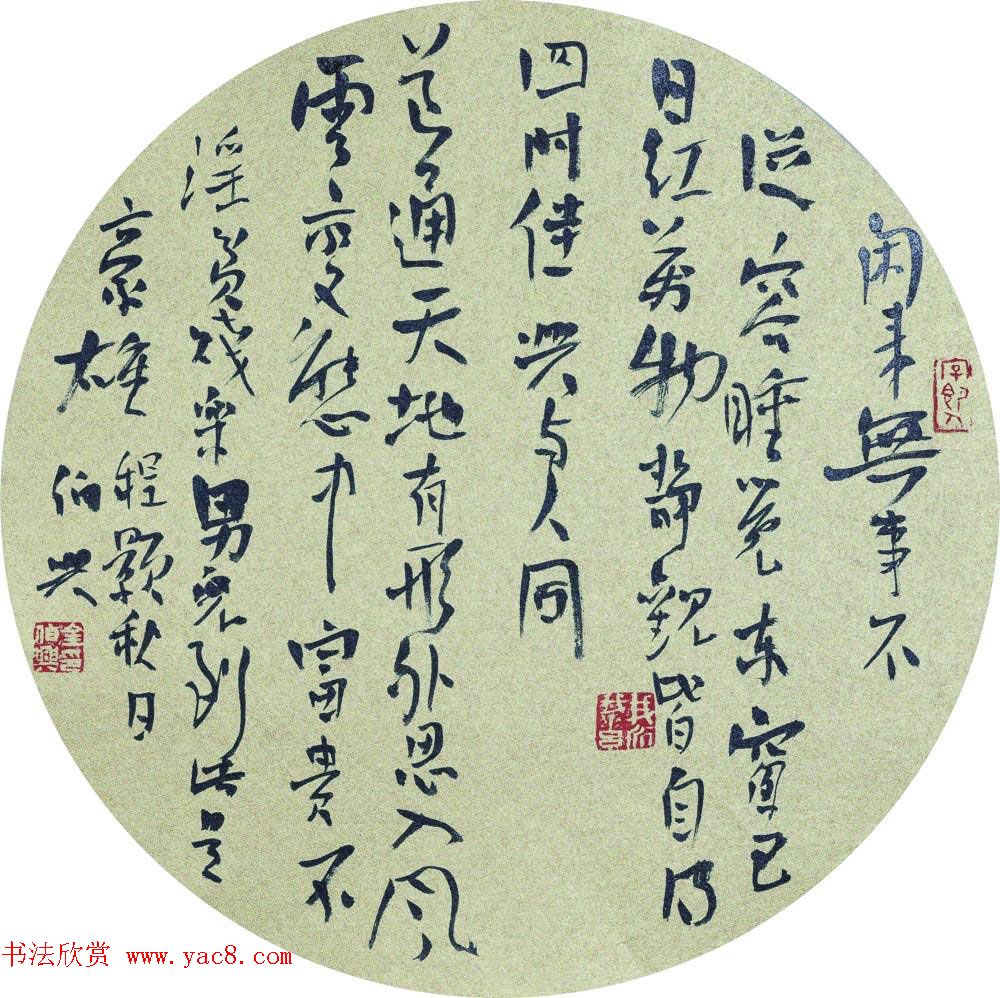 闲来無事不
従容睡覚东窗已
日红萬物静観皆自得
四时佳兴与人同
道通天地有形外思入风
雲变態中富貴不
淫貧賤楽男児到此是
豪雄 程颢秋日
伯兴
金印伯興
书法欣赏 www.yac8.com